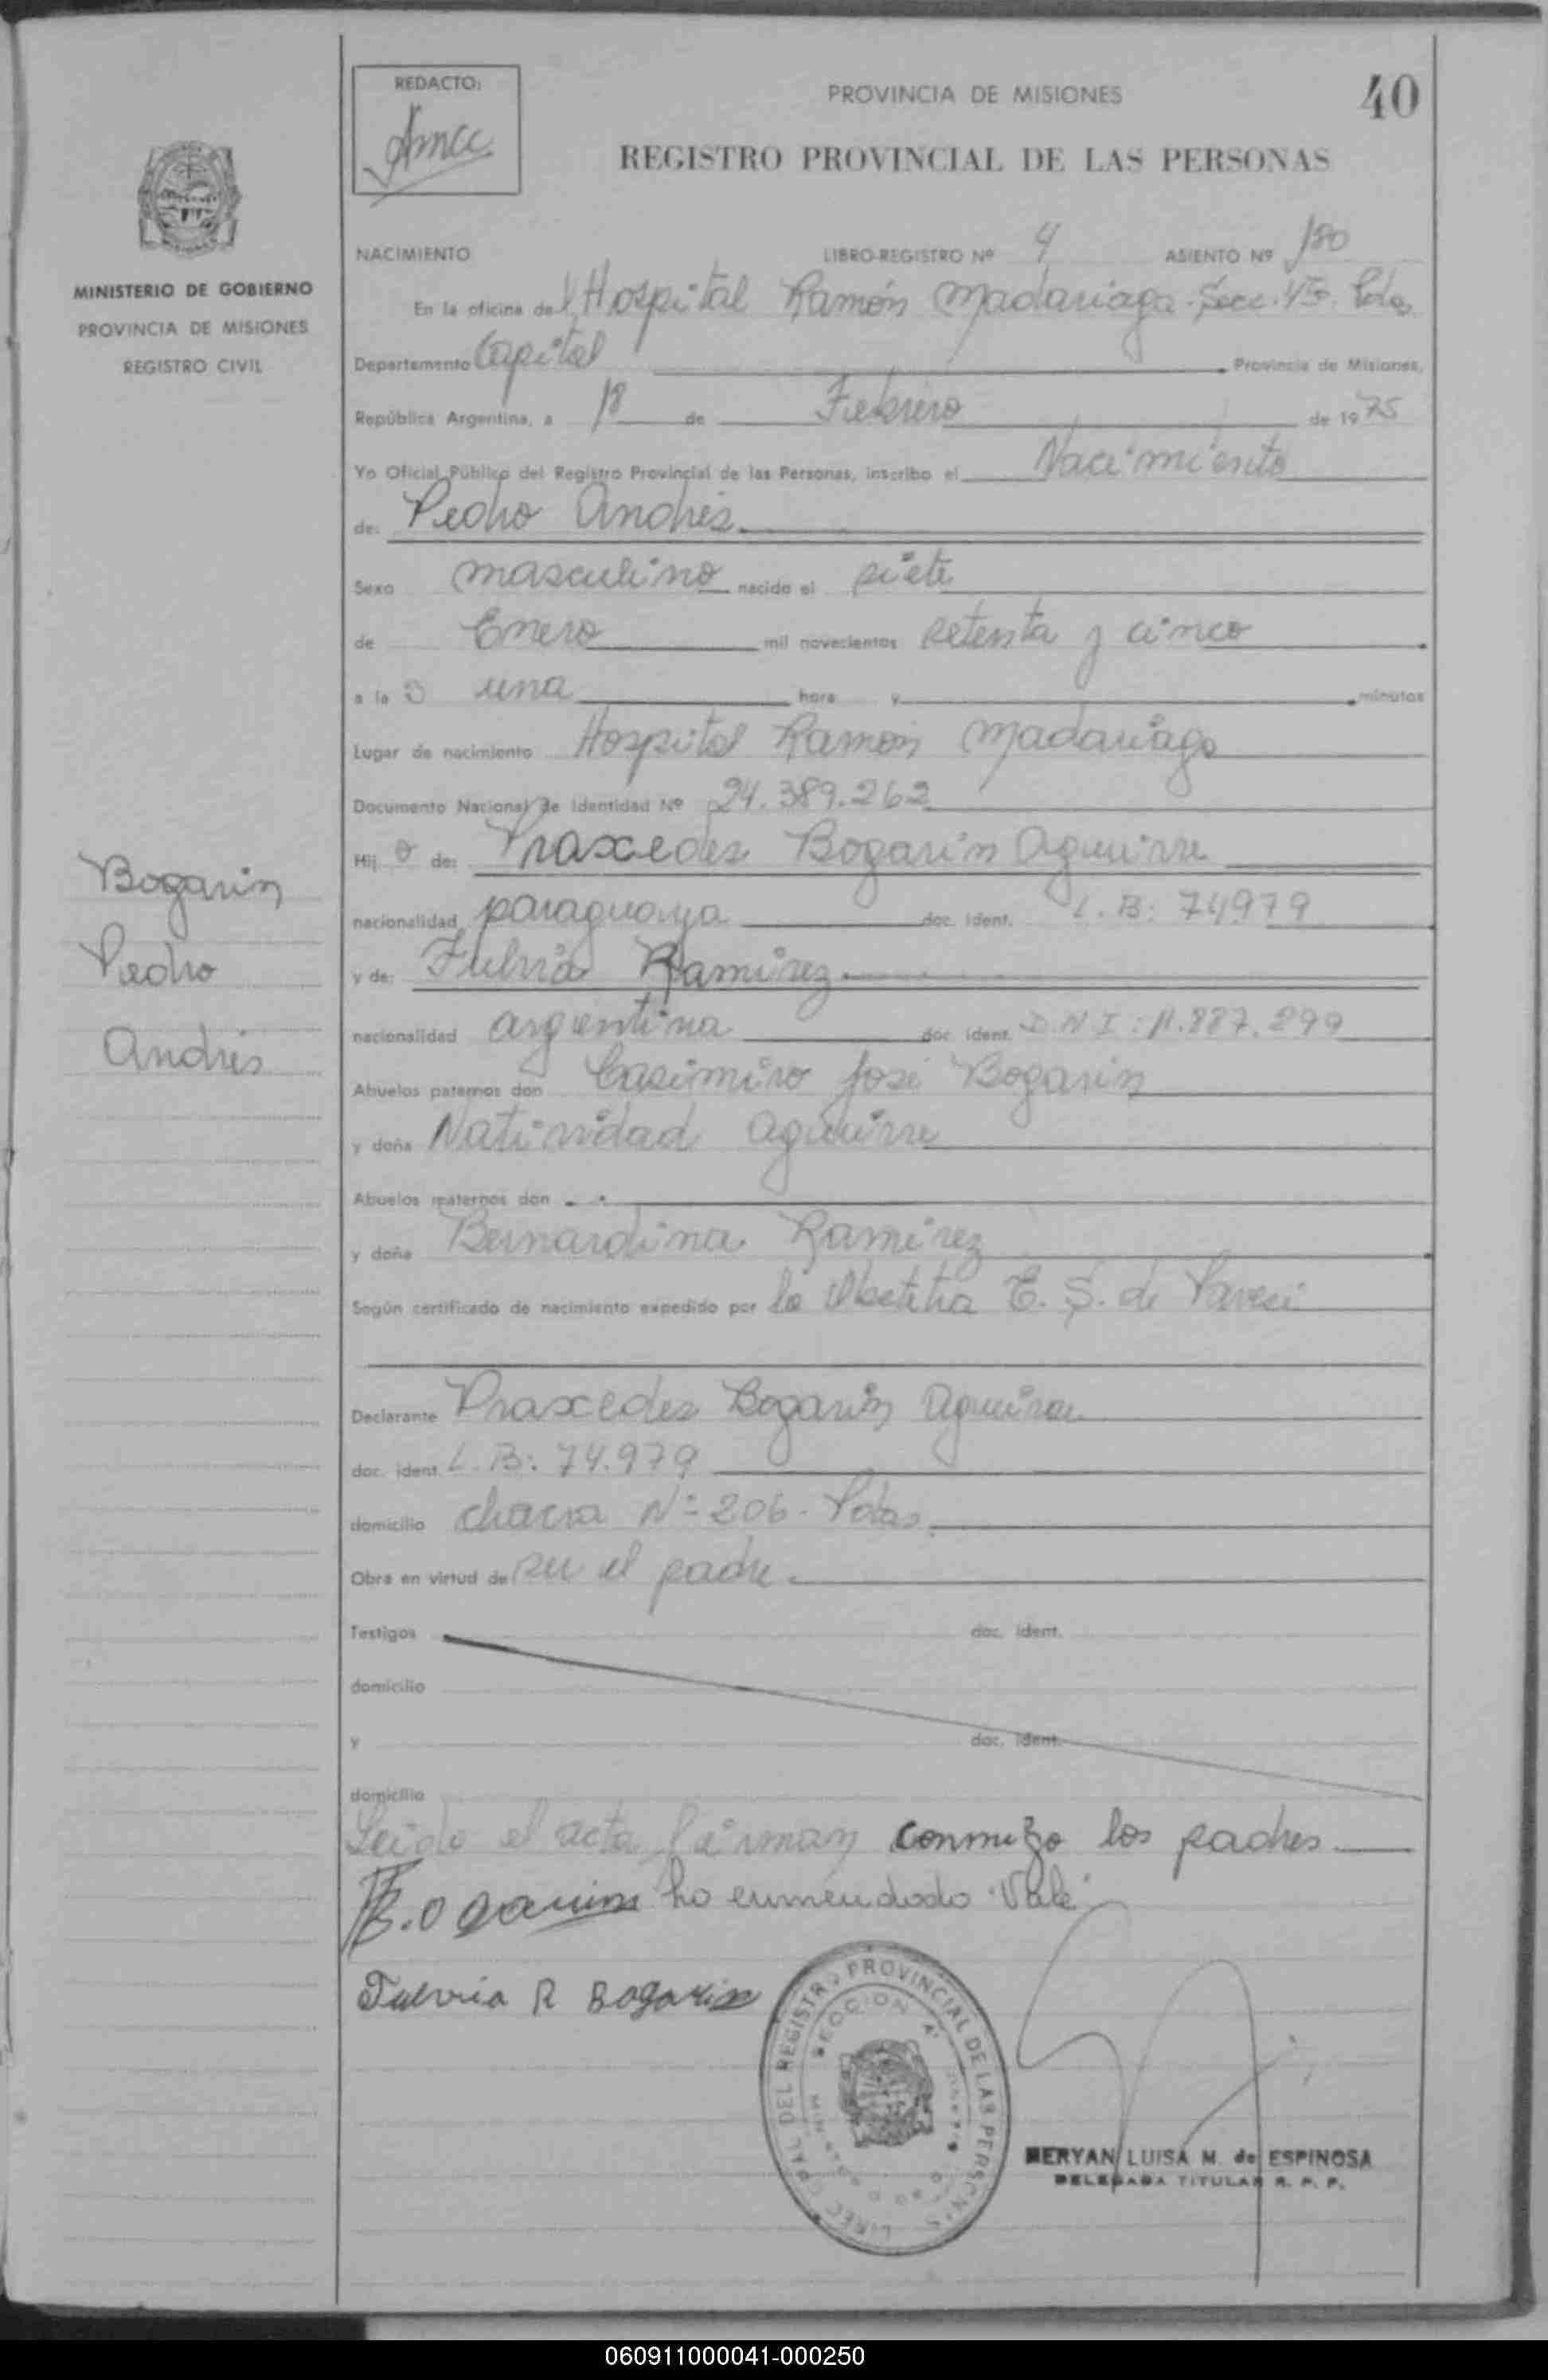 REDACTO:
PROVINCIA DE MISIONES
40
REGISTRO PROVINCIAL DE LAS PERSONAS
NACIMIENTO LIBRO-REGISTRO Nº 4 ASIENTO Nº 180
En la oficina del Hospital Ramón Madariaga. Secc. 4ta. Pdas
Departamento Capital Provincia de Misiones,
República Argentina, a 18 de Febrero de 1975
Yo Oficial Público del Registro Provincial de las Personas, inscribo el Nacimiento
de: Pedro Andrés
Sexo masculino nacido el siete
de Enero mil novecientos setenta y cinco
a la una hora y minutos
Lugar de nacimiento Hospital Ramón Madariaga
Documento Nacional de Identidad Nº 24.389.262
Hijo de: Praxcedes Bogarin Aguirre
nacionalidad paraguaya doc. ident. L.B: 74979
y de: Fulvia Ramirez
nacionalidad argentina doc. ident. D.N.I: 11.887.299
Abuelos paternos don Casimiro José Bogarin
y doña Natividad Aguirre
Abuelos maternos don
y doña Bernardina Ramirez
Según certificado de nacimiento expedido por la Obstetra E. S. de
Declarante Praxcedes Bogarin Aguirre
doc. ident. L.B: 74.979
domicilio chacra Nº 206 - Pdas
Obra en virtud de ser el padre
Testigos doc. ident.
domicilio
y doc. ident.
domicilio
Leido el acta firman conmigo los padres
Bogarin lo enmendado "Vale"
Fulvia R Bogarin
DEL REGISTRO PROVINCIAL DE LAS PERSONAS
SECCION 4ª
MERYAN LUISA M. de ESPINOSA
DELEGADA TITULAR R. P. P.
MINISTERIO DE GOBIERNO
PROVINCIA DE MISIONES
REGISTRO CIVIL
Bogarin
Pedro
Andrés
060911000041-000250